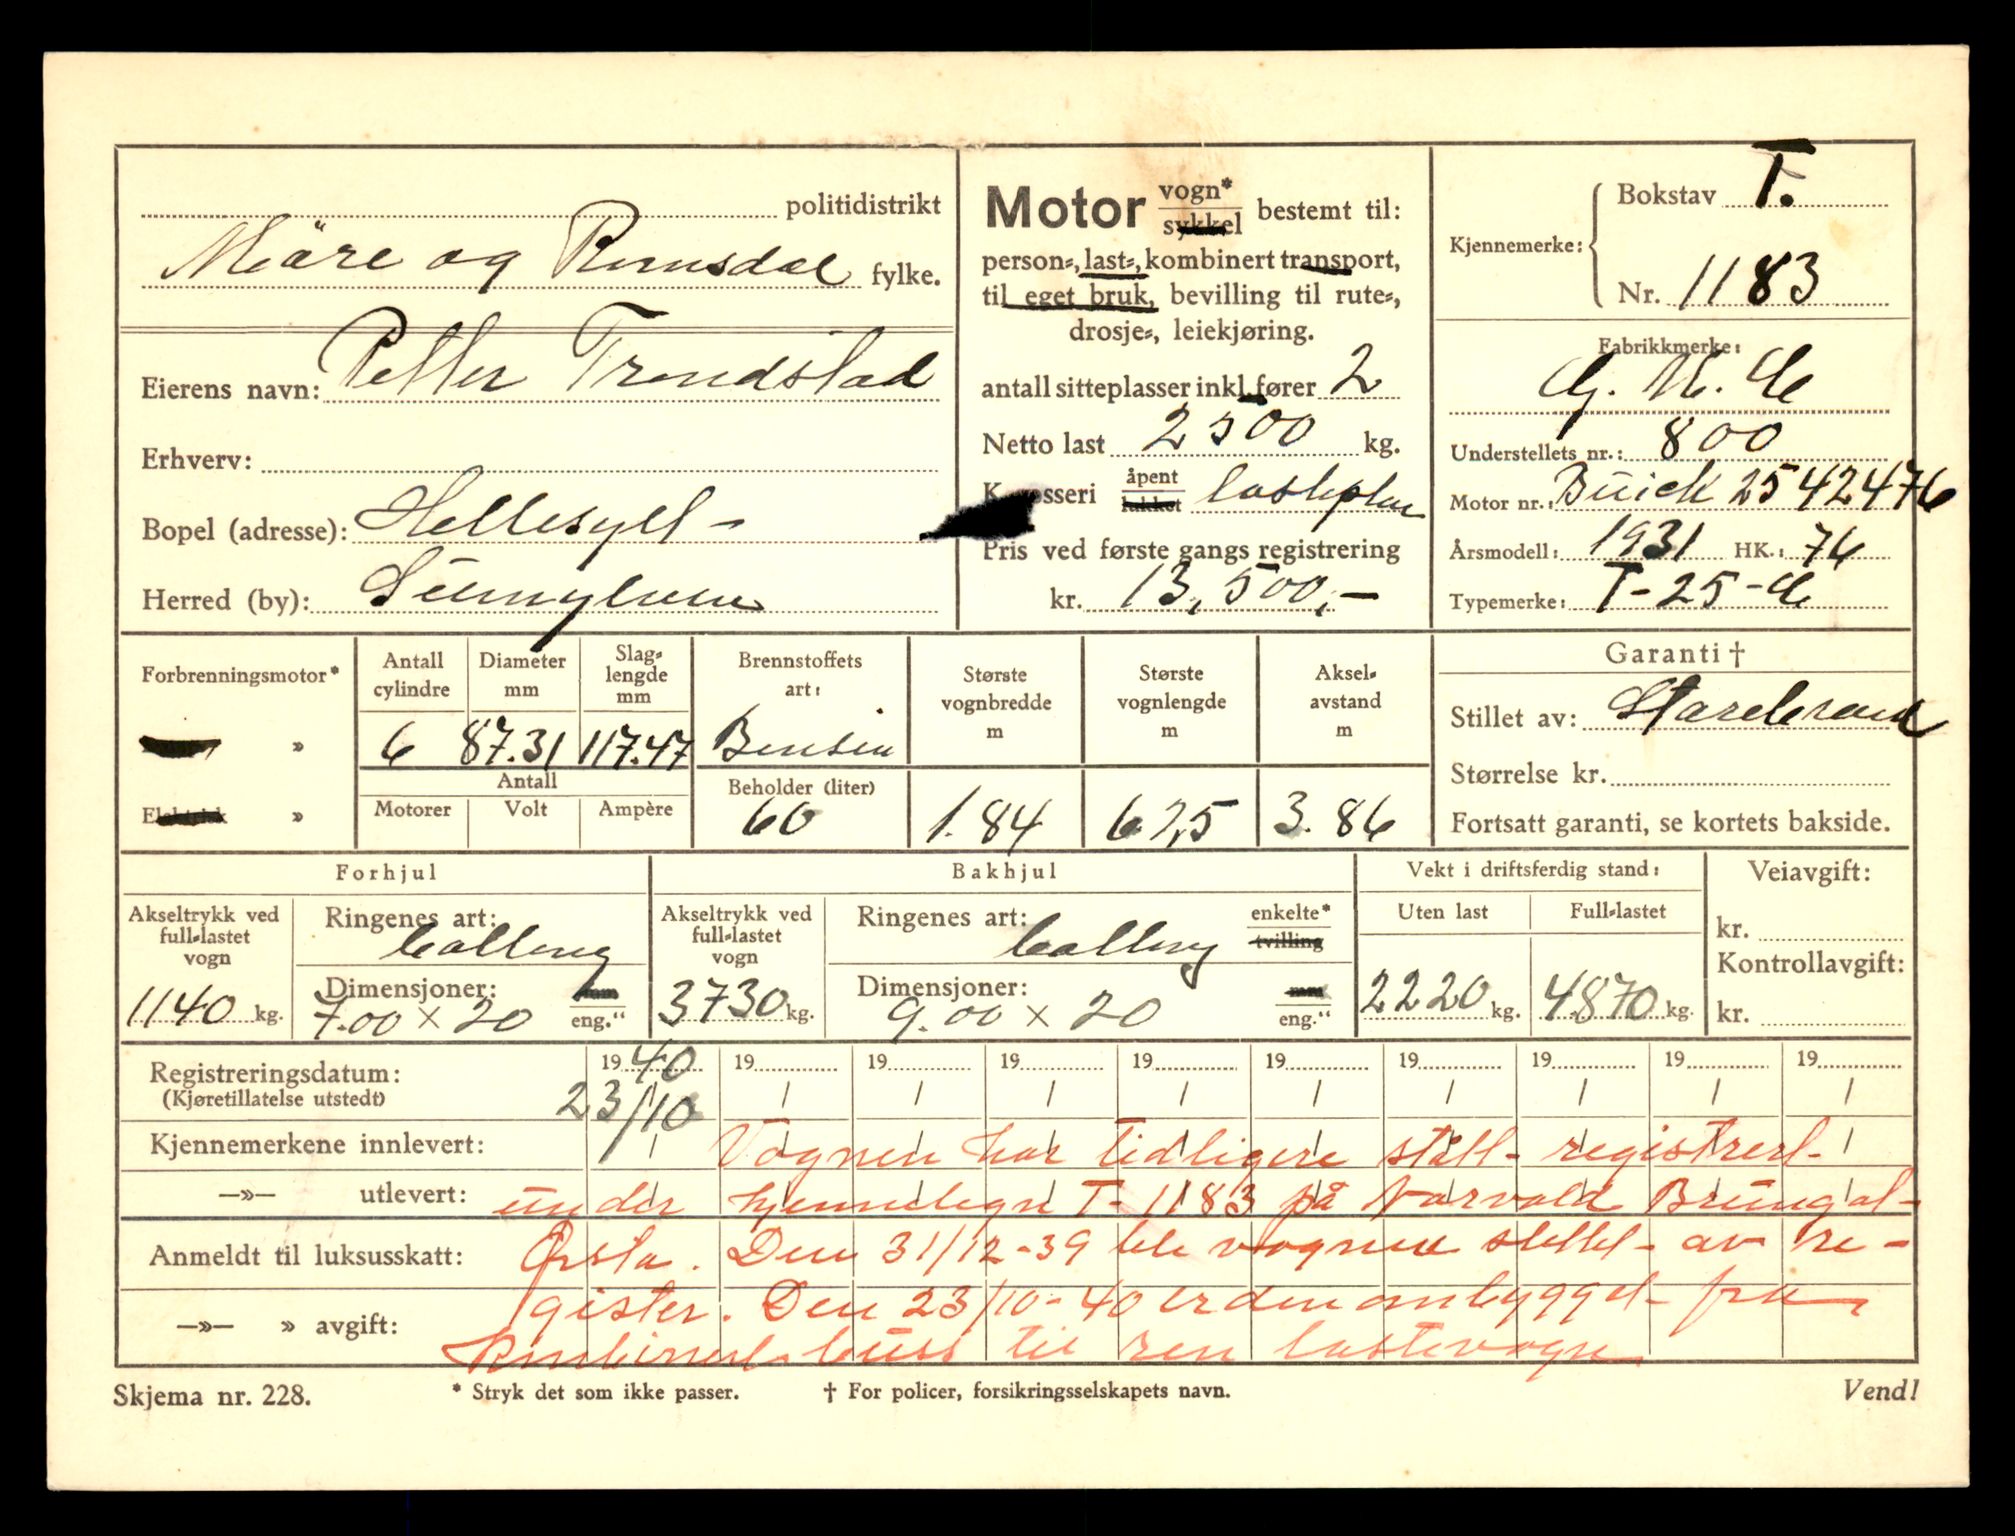 politidistrikt
Möre og Romsdal fylke.
Eierens navn: Petter Trondstad
Erhverv:
Bopel (adresse): Hellesylt
Herred (by): Sunnylven
Motor vogn*
sykkel bestemt til:
person-, last-, kombinert transport,
til eget bruk, bevilling til rute-,
drosje-, leiekjøring.
antall sitteplasser inkl. fører 2
Netto last 2500 kg.
Karosseri åpent
lukket lasteplan
Pris ved første gangs registrering
kr. 13,500,-
Kjennemerke: Bokstav T.
Nr. 1183
Fabrikkmerke:
G. M. C
Understellets nr.: 800
Motor nr.: Buick 2542476
Årsmodell: 1931 HK.: 76
Typemerke: T-25-C
Forbrenningsmotor*
»
Elektrisk »
Antall cylindre
6
Diameter mm
87.31
Slaglengde mm
117.47
Antall
Motorer Volt Ampère
Brennstoffets art:
Bensin
Beholder (liter)
60
Største vognbredde m
1.84
Største vognlengde m
6.25
Akselavstand m
3.86
Garanti †
Stillet av: Storebrand
Størrelse kr.
Fortsatt garanti, se kortets bakside.
Forhjul
Akseltrykk ved full-lastet vogn
1140 kg.
Ringenes art: ballong
Dimensjoner: mm
7.00 × 20 eng."
Bakhjul
Akseltrykk ved full-lastet vogn
3730 kg.
Ringenes art: ballong enkelte*
tvilling
Dimensjoner: mm
9.00 × 20 eng."
Vekt i driftsferdig stand:
Uten last Full-lastet
2220 kg. 4870 kg.
Veiavgift:
kr.
Kontrollavgift:
kr.
Registreringsdatum: 1940 19 19 19 19 19 19 19 19 19
(Kjøretillatelse utstedt) 23/10 / / / / / / / / /
Kjennemerkene innlevert: Vognen har tidligere stått registrert
—»— utlevert: under kjennetegn T-1183 på Norvald Brungot
Anmeldt til luksusskatt: Ørsta. Den 31/12-39 ble vognen slettet av re-
gister. Den 23/10-40 er den ombygget fra
—»— » avgift: kombinert buss til ren lastevogn
Skjema nr. 228. * Stryk det som ikke passer. † For policer, forsikringsselskapets navn. Vend!